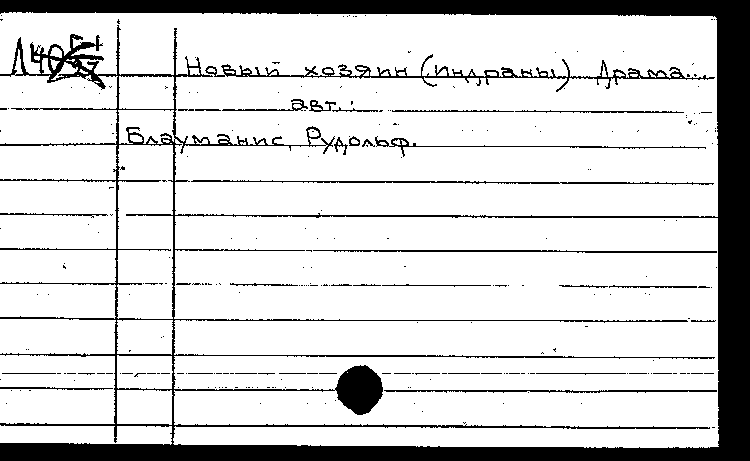 Новый хозяин (Индраны) Драма...
авт.:
Блауманис, Рудольф.